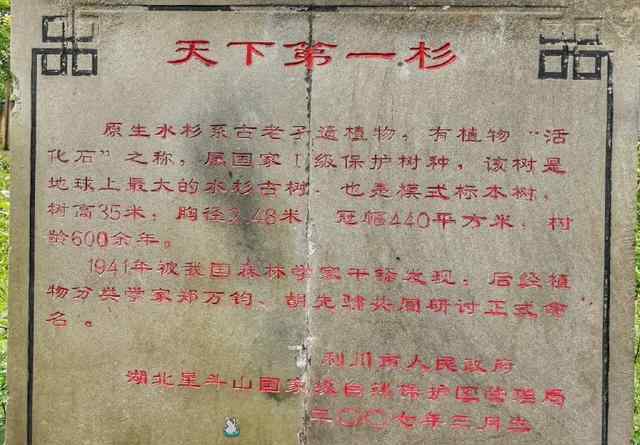 天下第一杉
原生水杉系古老孑遗植物，有植物“活
化石”之称，属国家Ⅰ级保护树种，该树是
地球上最大的水杉古树，也是模式标本树，
树高35米，胸径2.48米，冠幅440平方米，树
龄600余年。
1941年被我国森林学家干铎发现，后经植
物分类学家郑万钧、胡先骕共同研讨正式命
名。
利川市人民政府
湖北星斗山国家级自然保护区管理局
二〇〇七年三月立